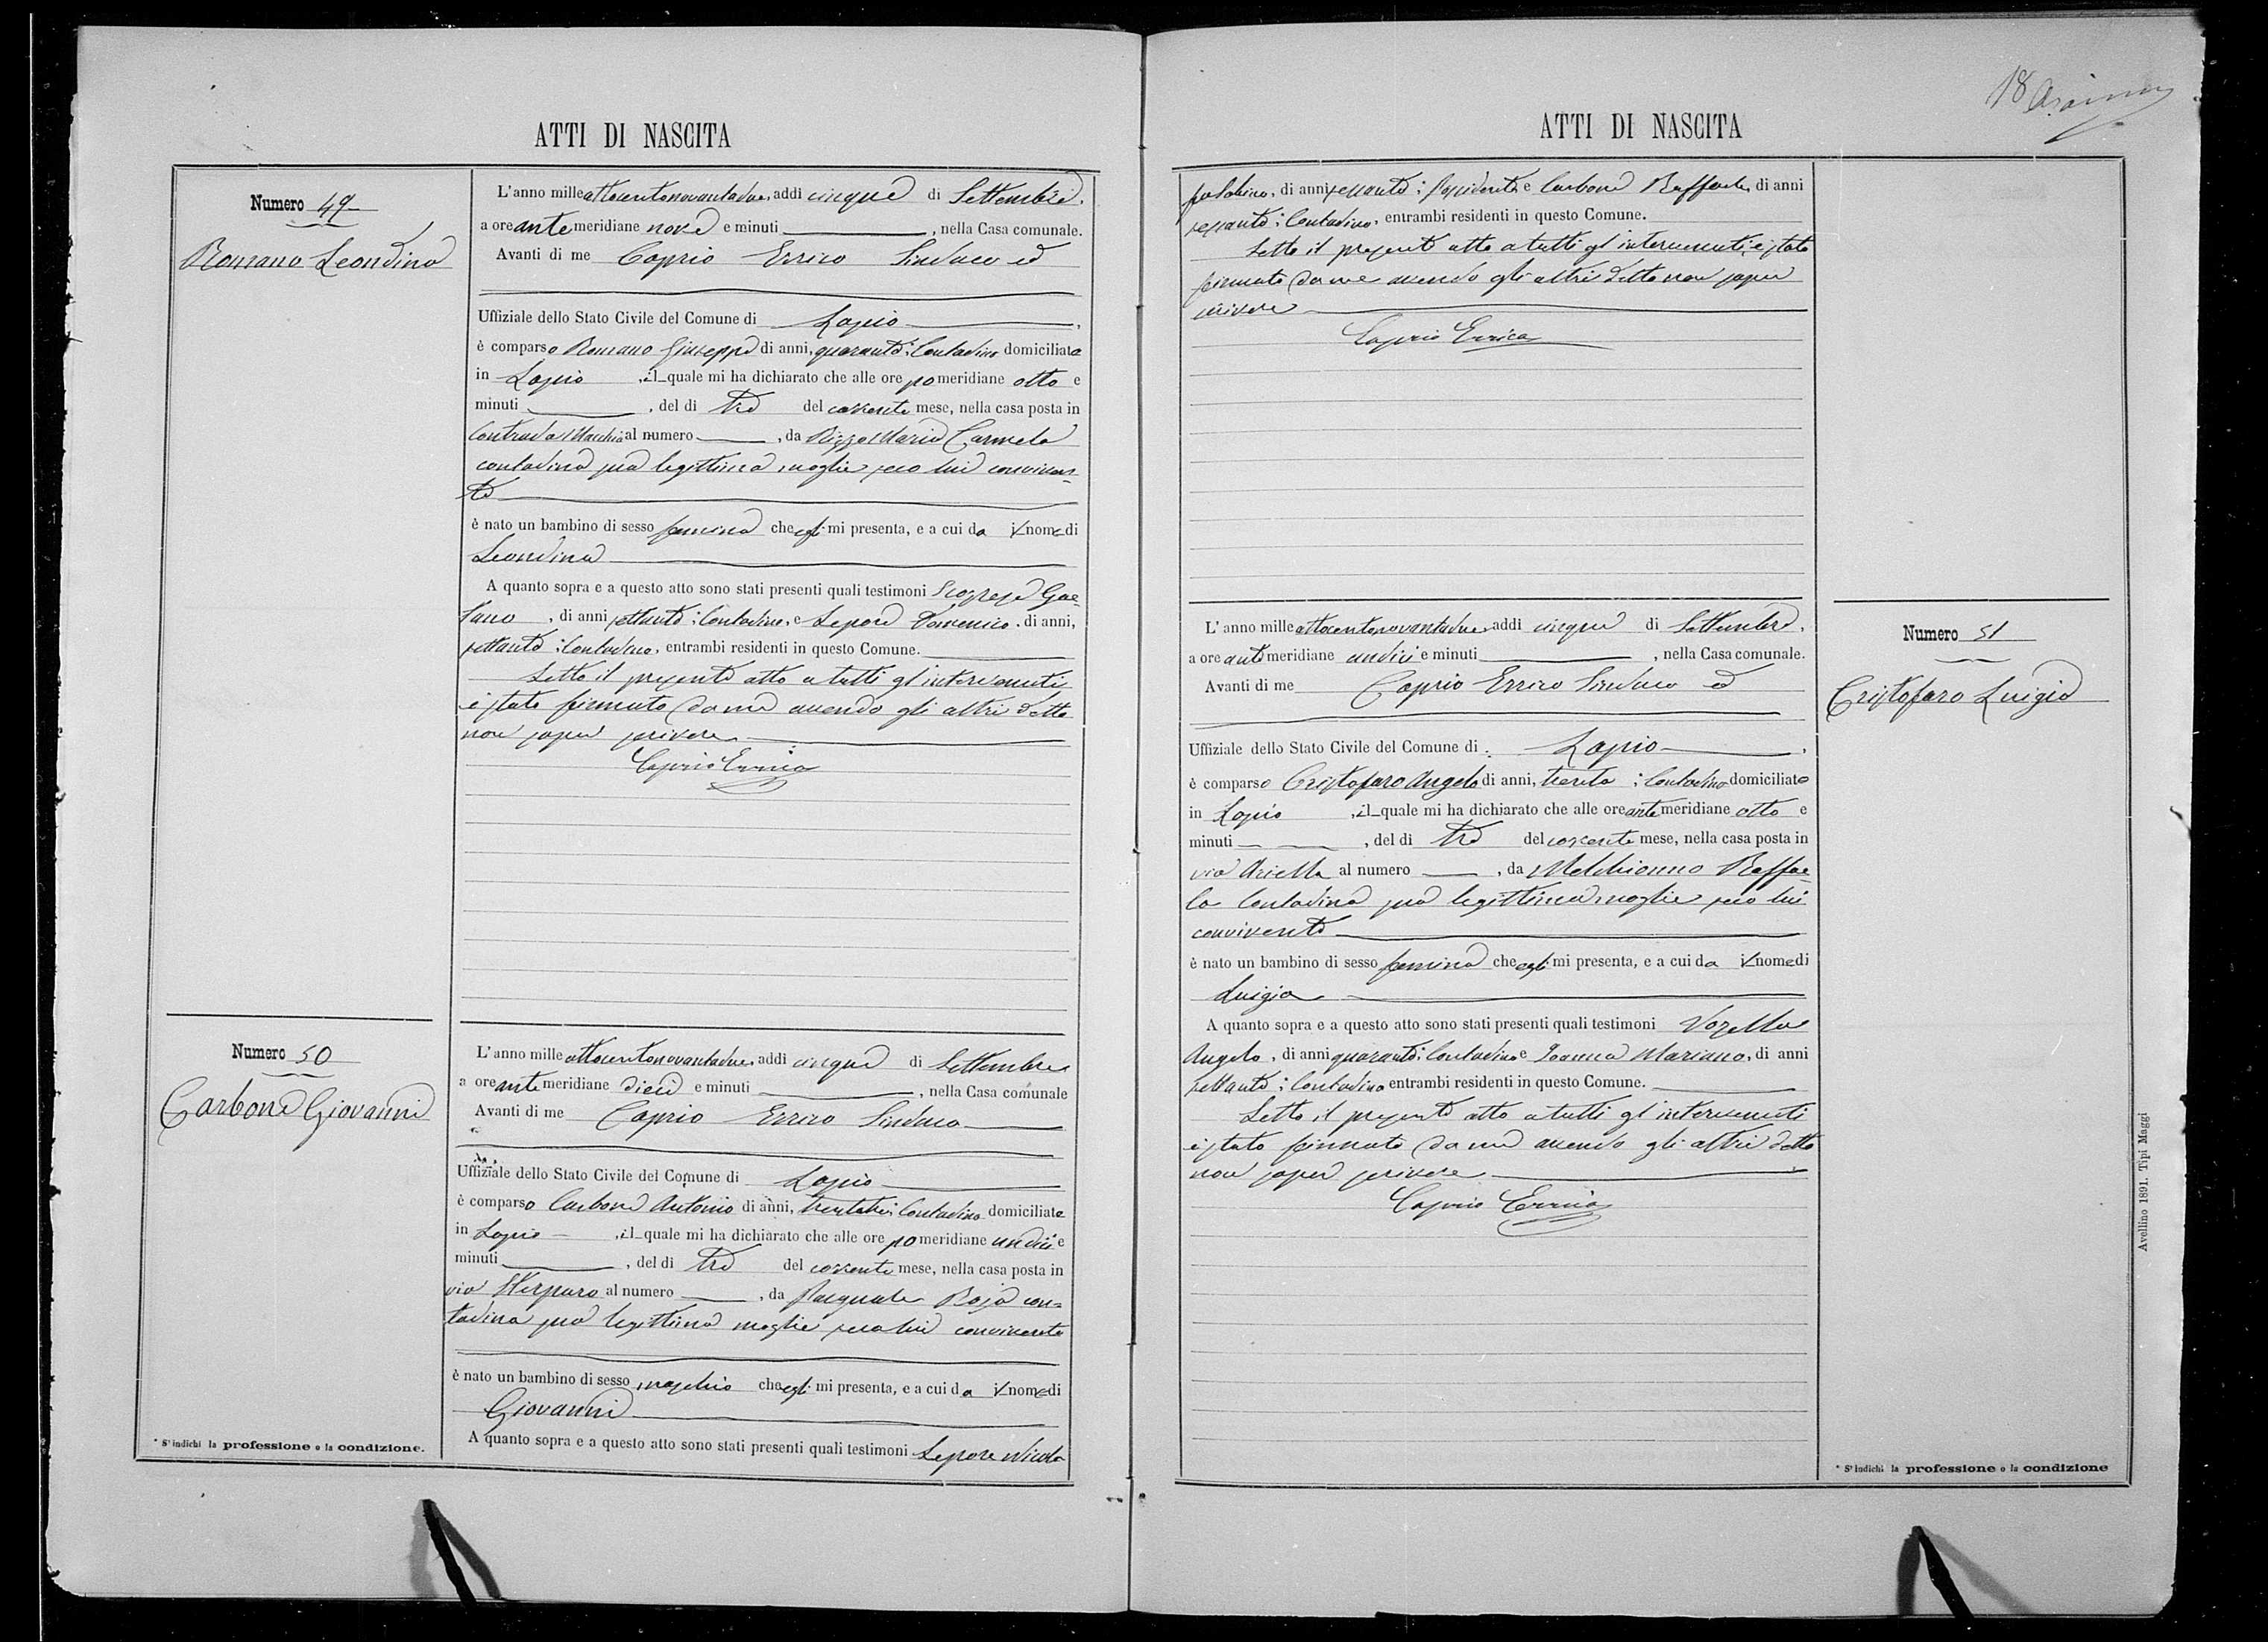 ATTI DI NASCITA
Numero 49
Romano Leondina
L'anno mille ottocentonovantadue, addì cinque di Settembre,
a ore ante meridiane nove e minuti , nella Casa comunale.
Avanti di me Caprio Errico Sindaco ed
Uffiziale dello Stato Civile del Comune di Lapio ,
è comparso Romano Giuseppe di anni, quaranta; Contadino domiciliato
in Lapio , il quale mi ha dichiarato che alle ore pomeridiane otto e
minuti , del dì tre del corrente mese, nella casa posta in
Contrada Macchia al numero , da Rizzo Maria Carmela
contadina sua legittima moglie seco lui conviven-
te
è nato un bambino di sesso femina che egli mi presenta, e a cui da il nome di
Leondina
A quanto sopra e a questo atto sono stati presenti quali testimoni Gae-
tano , di anni settanta; Contadino, e Lepore Domenico, di anni,
settanta; Contadino, entrambi residenti in questo Comune.
Letto il presente atto a tutti gl'intervenuti
è stato firmato da me avendo gli altri detto
non saper scrivere
Caprio Errico
Numero 50
Carbone Giovanni
L'anno mille ottocentonovantadue, addì cinque di Settembre
a ore ante meridiane dieci e minuti , nella Casa comunale
Avanti di me Caprio Errico Sindaco
Uffiziale dello Stato Civile del Comune di Lapio
è comparso Carbone Antonio di anni, trentatre; Contadino domiciliato
in Lapio , il quale mi ha dichiarato che alle ore pomeridiane undici e
minuti , del dì tre del corrente mese, nella casa posta in
via al numero , da Pasquale Rosa con=
tadina sua legittima moglie seco lui convivente
è nato un bambino di sesso maschio che egli mi presenta, e a cui da il nome di
Giovanni
A quanto sopra e a questo atto sono stati presenti quali testimoni Lepore Nicola
* S'indichi la professione o la condizione.
18
ATTI DI NASCITA
fu Sabino, di anni sessanta; Possidente e Carbone Raffaele, di anni
sessanta; Contadino, entrambi residenti in questo Comune.
Letto il presente atto a tutti gl'intervenuti, è stato
firmato da me avendo gli altri detto non saper
scrivere
Caprio Errico
Numero 51
Cristofaro Luigia
L'anno mille ottocentonovantadue, addì cinque di Settembre,
a ore ante meridiane undici e minuti , nella Casa comunale.
Avanti di me Caprio Errico Sindaco ed
Uffiziale dello Stato Civile del Comune di Lapio ,
è comparso Cristofaro Angelo di anni, trenta; Contadino domiciliato
in Lapio , il quale mi ha dichiarato che alle ore ante meridiane otto e
minuti , del dì tre del corrente mese, nella casa posta in
via Ariella al numero , da Melchionno Raffae-
la Contadina sua legittima moglie seco lui
convivente
è nato un bambino di sesso femina che egli mi presenta, e a cui da il nome di
Luigia
A quanto sopra e a questo atto sono stati presenti quali testimoni Vozella
Angelo, di anni quaranta; Contadino e Ioanna Mariano, di anni
settanta; Contadino entrambi residenti in questo Comune.
Letto il presente atto a tutti gl'intervenuti
è stato firmato da me avendo gli altri detto
non saper scrivere
Caprio Errico
* S'indichi la professione o la condizione
Avellino 1891. Tipi Maggi